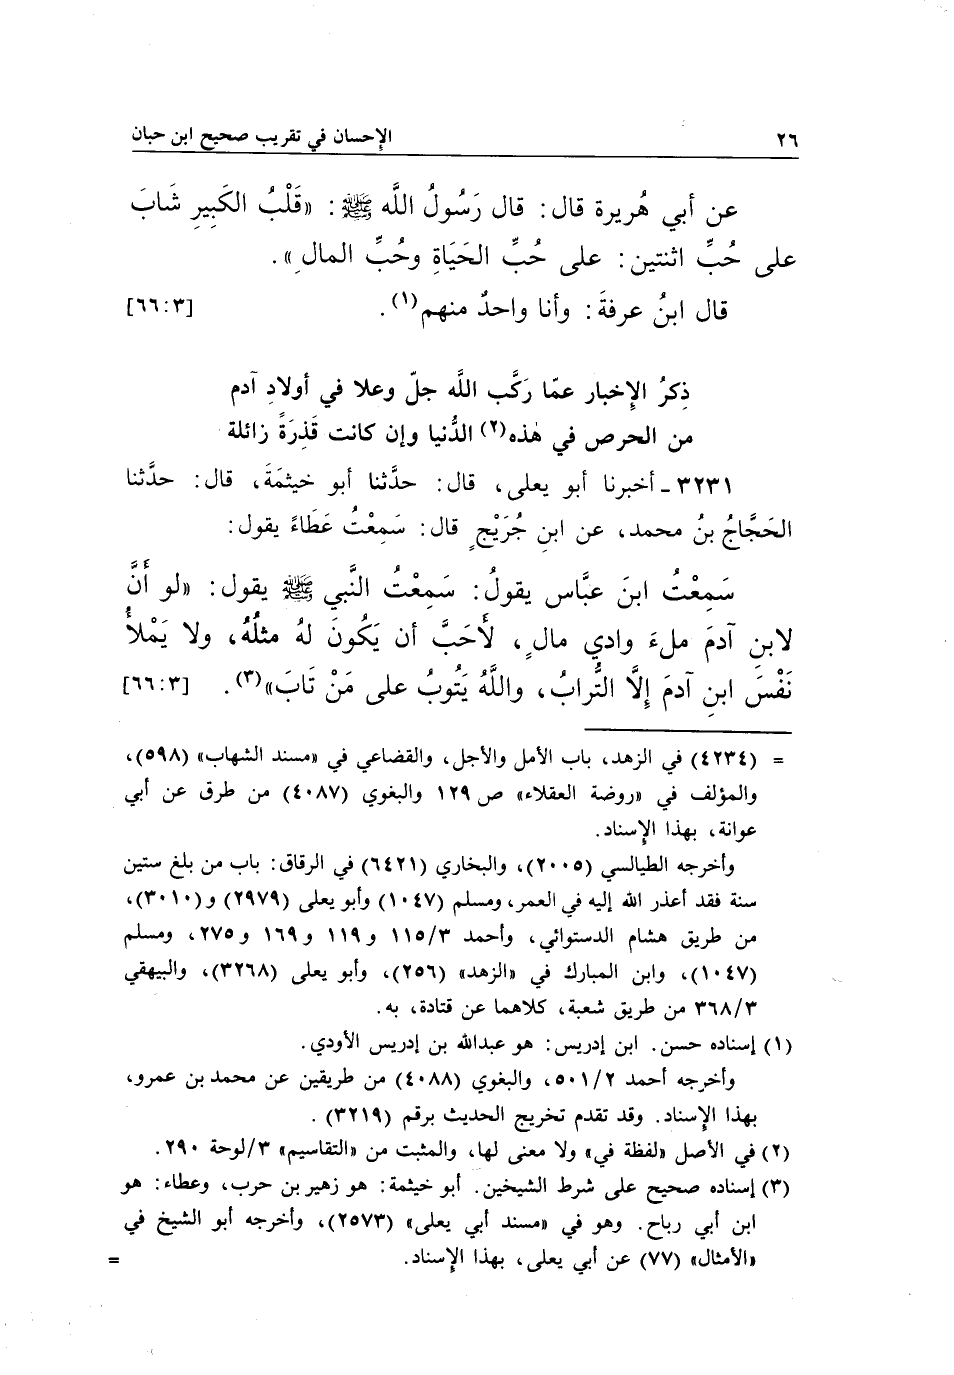 ٢٦ الإحسان في تقريب صحيح ابن حبان
عن أبي هُريرة قال: قال رَسُولُ اللَّه ﷺ: «قَلْبُ الكَبِيرِ شَابَ
على حُبِّ اثنتين: على حُبِّ الحَيَاةِ وحُبِّ المالِ».
قال ابنُ عرفةَ: وأنا واحدٌ منهم(١). [٣:٦٦]
ذِكرُ الإِخبار عمّا رَكَّب اللَّه جلّ وعلا في أولادِ آدم
من الحرص في هٰذه(٢) الدُّنيا وإن كانت قَذِرَةً زائلة
٣٢٣١ - أخبرنا أبو يعلى، قال: حدَّثنا أبو خيثمَةَ، قال: حدَّثنا
الحَجَّاجُ بنُ محمد، عن ابنِ جُرَيْجٍ قال: سَمِعْتُ عَطَاءً يقول:
سَمِعْتُ ابنَ عبَّاس يقولُ: سَمِعْتُ النَّبي ﷺ يقول: «لو أَنَّ
لابنِ آدمَ ملءَ وادي مالٍ، لَأحَبَّ أن يَكُونَ لهُ مثلُهُ، ولا يَمْلأُ
نَفْسَ ابنِ آدمَ إِلَّا التُّرابُ، واللَّهُ يَتُوبُ على مَنْ تَابَ»(٣). [٣:٦٦]
= (٤٢٣٤) في الزهد، باب الأمل والأجل، والقضاعي في «مسند الشهاب» (٥٩٨)،
والمؤلف في «روضة العقلاء» ص١٢٩ والبغوي (٤٠٨٧) من طرق عن أبي
عوانة، بهذا الإِسناد.
وأخرجه الطيالسي (٢٠٠٥)، والبخاري (٦٤٢١) في الرقاق: باب من بلغ ستين
سنة فقد أعذر الله إليه في العمر، ومسلم (١٠٤٧) وأبو يعلى (٢٩٧٩) و(٣٠١٠)،
من طريق هشام الدستوائي، وأحمد ١١٥/٣ و١١٩ و١٦٩ و٢٧٥، ومسلم
(١٠٤٧)، وابن المبارك في «الزهد» (٢٥٦)، وأبو يعلى (٣٢٦٨)، والبيهقي
٣٦٨/٣ من طريق شعبة، كلاهما عن قتادة، به.
(١) إسناده حسن. ابن إدريس: هو عبدالله بن إدريس الأودي.
وأخرجه أحمد ٥٠١/٢، والبغوي (٤٠٨٨) من طريقين عن محمد بن عمرو،
بهذا الإِسناد. وقد تقدم تخريج الحديث برقم (٣٢١٩).
(٢) في الأصل «لفظة في» ولا معنى لها، والمثبت من «التقاسيم» ٣/لوحة ٢٩٠.
(٣) إسناده صحيح على شرط الشيخين. أبو خيثمة: هو زهير بن حرب، وعطاء: هو
ابن أبي رباح. وهو في «مسند أبي يعلى» (٢٥٧٣)، وأخرجه أبو الشيخ في
«الأمثال» (٧٧) عن أبي يعلى، بهذا الإِسناد. =